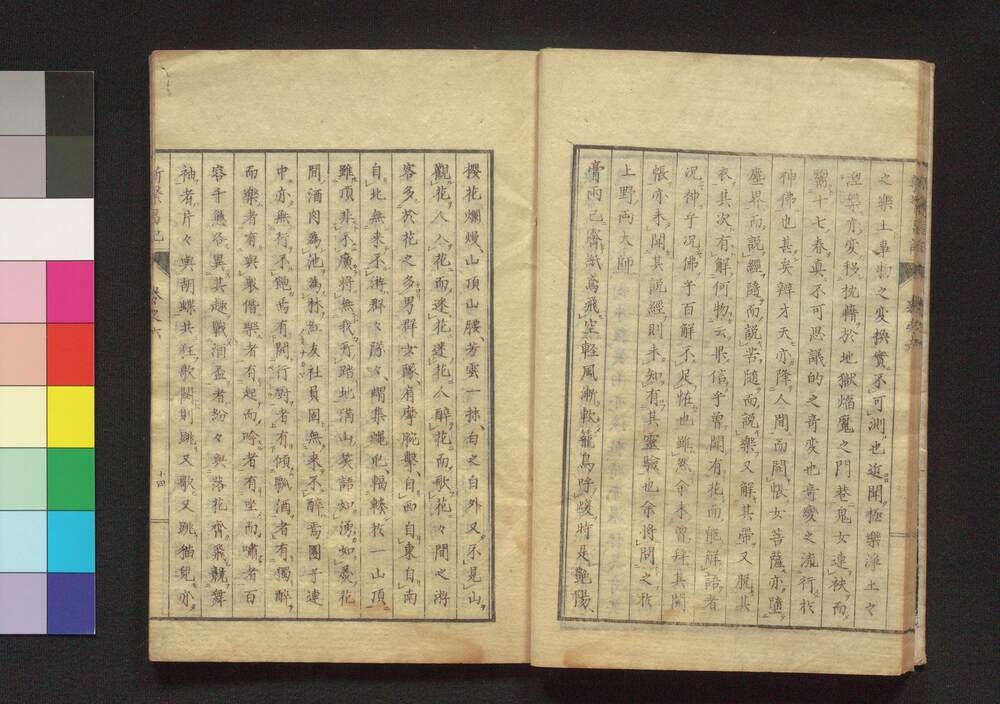 之樂土事物之変換實不可測也近聞極樂淨土々
涅槃亦変移枕藉於地獄焰魔之門巷鬼女連袂而
鬻十七春真不可思議的之奇变也奇変之流行於
神佛也甚矣辨才天亦降人間而開帳女菩薩亦墮
塵界而説經隨而説苦隨而説樂又解其帶又脱其
衣其次有解何物云果信乎曽聞有花而能解語者
况神乎况佛乎百解不足怪也雖然余未曽拜其開
帳亦未聞其説經則未知有其靈驗也余將問之於
上野両大師
膏雨已霽紙鳶飛空輕風漸軟籠鳥呼友時是艶陽
櫻花爛熳山頂山腰芳雲一抹白之白外又不見山
觀花人人花而迷花迷花人醉花而歌花々間之游
客多於花之多男群女隊肩摩腕擊自西自東自南
自北無来不游群々隊々蝟集蠅屯輻輳於一山頂
雖項非不廣將無我所踏地満山笑語如湧如炎花
間酒肉為池為林紅友社員固無来不醉焉團子連
中亦無行不飽焉有開行厨者有傾瓢酒者有獨酔
而樂者有與衆偕樂者有起而吟者有坐而嘯者百
容千態各異其趣戰酒盃者紛々與落花齊飛競舞
袖者片々與胡蝶共狂歌闋則跳又歌又跳猫兒亦
十四